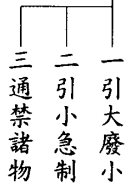 一引大廢小
二引小急制
三通禁諸物